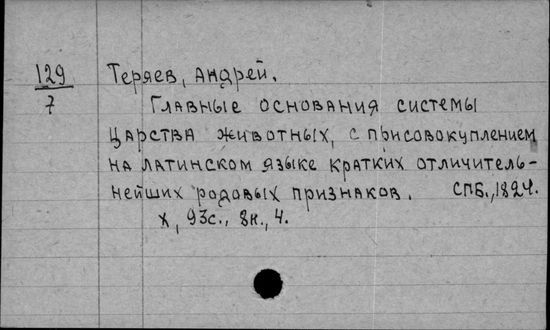 129
7
Теряев, Андрей.
Главные основания системы
царства животных, с присовокуплением
на латинском языке кратких отличитель-
нейших родовых признаков. СПБ., 1824.
X, 93с., 8н., 4.